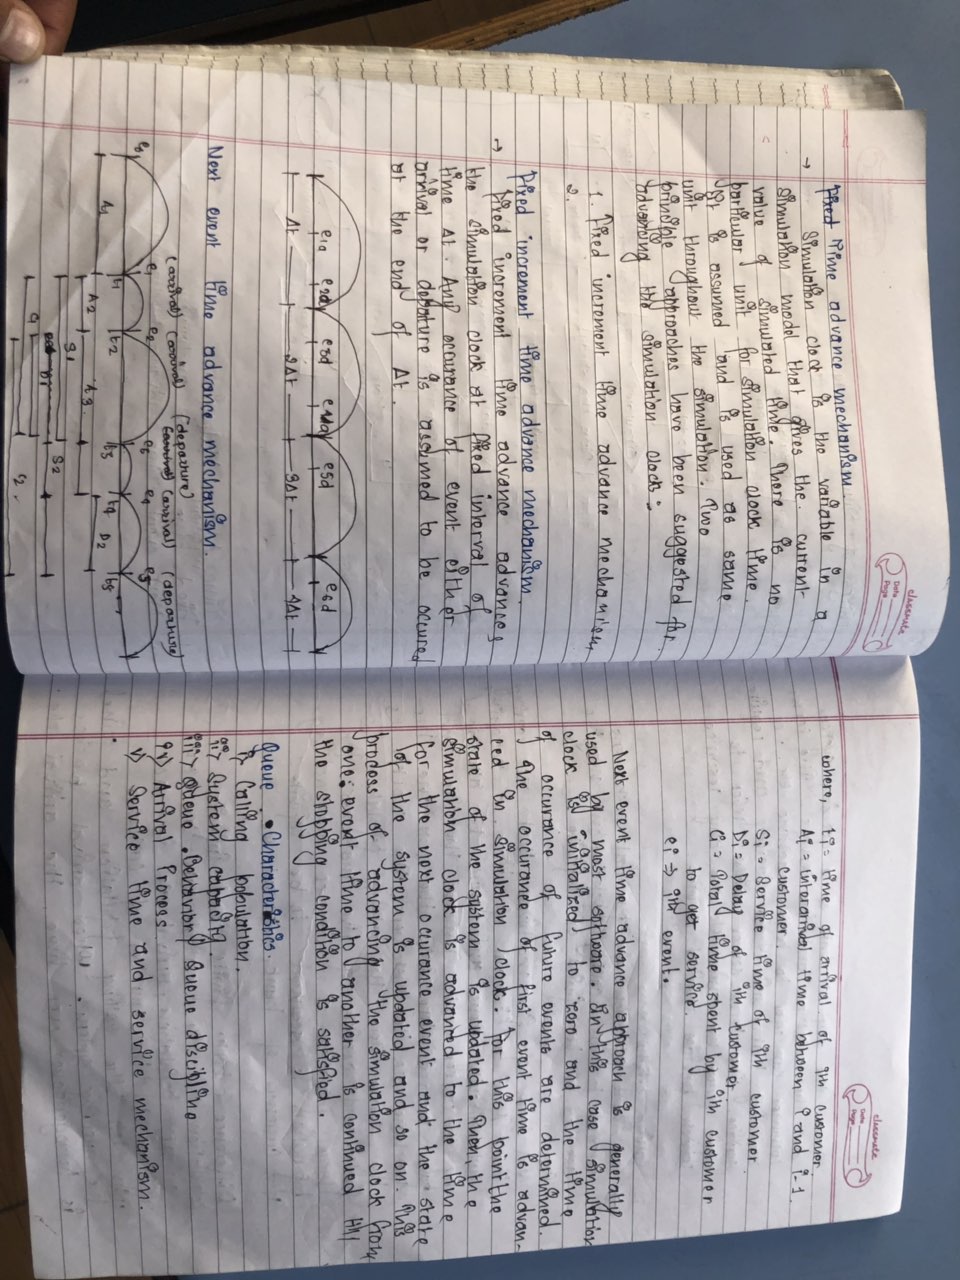 classmate
Date
Page
Fixed time advance mechanism.
→ Simulation clock is the variable in a
simulation model that gives the current
value of simulated time. There is no
particular unit for simulation clock time.
It is assumed and is used as same
unit throughout the simulation. Two
principle approaches have been suggested for
advancing the simulation clock:
1. Fixed increment time advance mechanism
2.
Fixed increment time advance mechanism.
→ Fixed increment time advance advances
the simulation clock at fixed interval of
time Δt. Any occurance of event either
arrival or depature is assumed to be occured
at the end of Δt.
e1a e2a e3d e4a e5d e6d
Δt 2Δt 3Δt 4Δt
Next event time advance mechanism.
(arrival) (arrival) (departure) (arrival) (arrival) (departure)
e0 e1 e2 e3 e4 e5
t1 t2 t3 t4 t5
A1 A2 A3 D2
S1 S2
classmate
Date
Page
where, ti = time of arrival of ith customer.
Ai = interarrival time between i and i-1
customer.
Si = Service time of ith customer
Di = Delay of ith customer
Ci = Total time spent by ith customer
to get service.
ei ⇒ ith event.
Next event time advance approach is generally
used by most software. In this case simulation
clock is initialized to zero and the time
of occurance of future events are determined.
The occurance of first event time is advan-
ced in simulation clock. For this point the
state of the system is updated. Then, the
simulation clock is advanced to the time
for the next occurance event and the state
of the system is updated and so on. This
process of advancing the simulation clock from
one event time to another is continued till
the stopping condition is satisfied.
Queue Characteristics.
i> Calling population.
ii> System capacity.
iii> Queue Behavior, Queue discipline
iv> Arrival Process.
v> Service time and service mechanism.